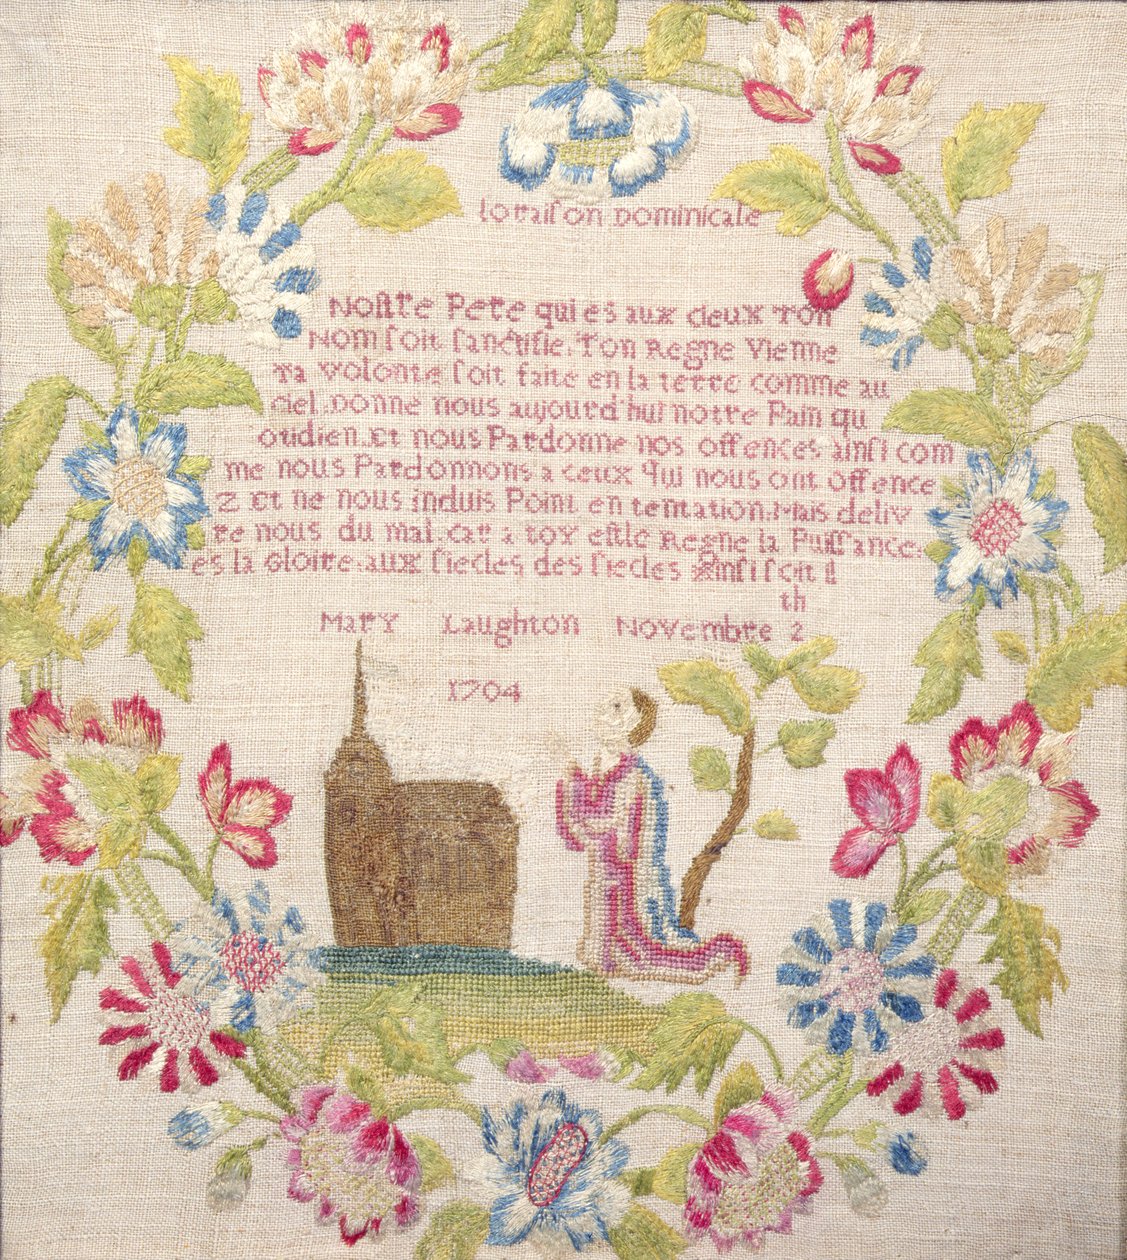 loraiſon Dominicale
Noſtre Pere qui es aux cieux Ton
Nom ſoit ſanctifie. Ton Regne Vienne
Ta volonte ſoit faite en la terre comme au
ciel. Donne nous aujourd'hui notre Pain qu
otidien. Et nous Pardonne nos offences ainſi com
me nous Pardonnons a ceux qui nous ont offence
z Et ne nous induis Point en tentation. Mais deliv
re nous du mal. car a toy eſt le Regne la Puiſſance.
es la Gloire. aux ſiecles des ſiecles Ainſi ſoit il
th
Mary Laughton Novembre 2
1704